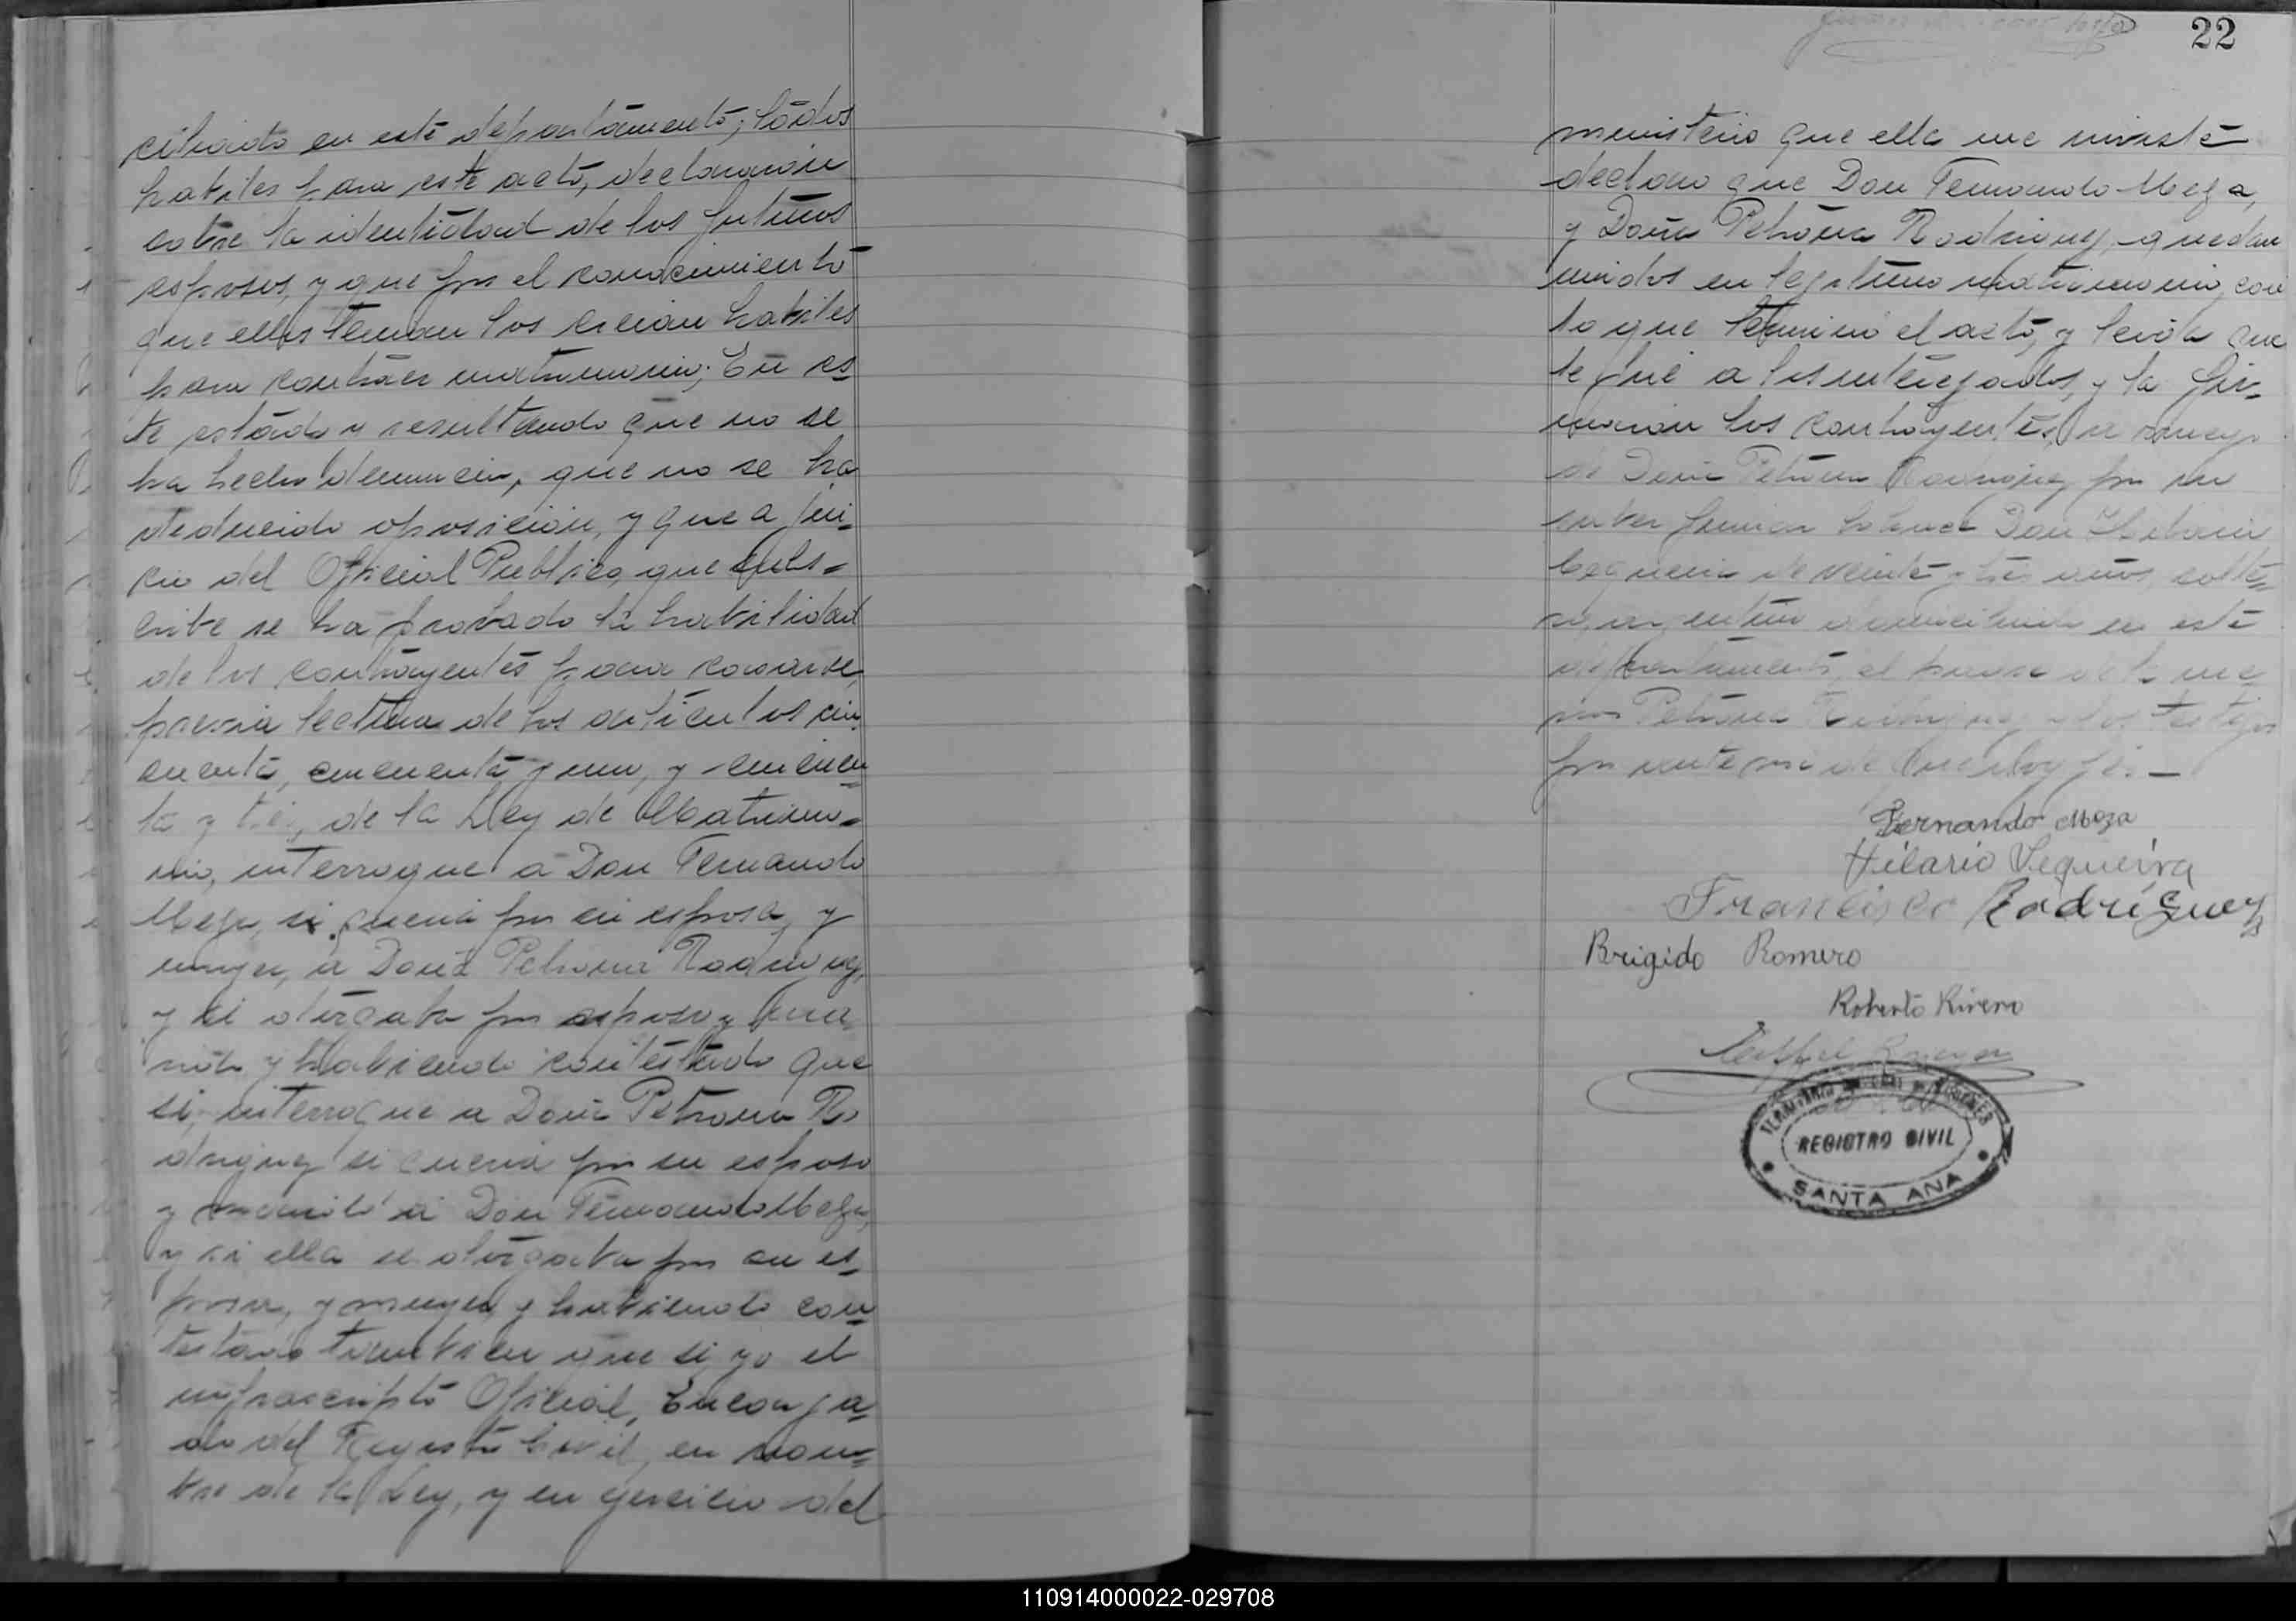 ciliado en este departamento; todos
habiles para este acto, declararon
sobre la identidad de los futuros
esposos, y que por el conocimiento
que ellos tenian los creian habiles
para contraer matrimonio; En es
te estado y resultando que no se
ha hecho denuncia, que no se ha
deducido oposicion, y que a jui-
cio del Oficial Publico, que subs=
cribe se ha probado la habilidad
de los contrayentes para casarse,
previa lectura de los articulos cin
cuenta, cincuenta y uno, y cincuen
ta y tres, de la Ley de Matrimo=
nio, interrogue a Don Fernando
Meza, si queria por su esposa, y
muger, a Doña Petrona Rodriguez,
y si otorgaba por esposo y ma
rido y habiendo contestado que
si, interrogue a Doña Petrona Ro
driguez si queria por su esposo
y marido a Don Fernando Meza,
y si ella se otorgaba por su es
posa, y muger, y habiendo con
testado tambien que si, yo el
infrascripto Oficial, Encarga
do del Registro Civil, en nom=
bre de la Ley, y en gercicio del
22
ministerio que ella me inviste
declaro que Don Fernando Meza,
y Doña Petrona Rodriguez, quedan
unidos en legitimo matrimonio, con
lo que termino el acto, y leida que
le fué a los interezados, y la fir-
maron los contrayentes, a ruego
de Doña Petrona Rodriguez por no
saber firmar lo hace Don Hilario
Sequeira de veinte y tres años, solte
ro, argentino domiciliado en este
departamento, el padre de la me
nor Petrona Rodriguez y los testigos
por ante mi de que doy fé. —
Fernando Meza
Hilario Sequeira
Francisco Rodriguez
Brigido Romero
Roberto Rivero
TERRITORIO MISIONES
REGISTRO CIVIL
SANTA ANA
110914000022-029708